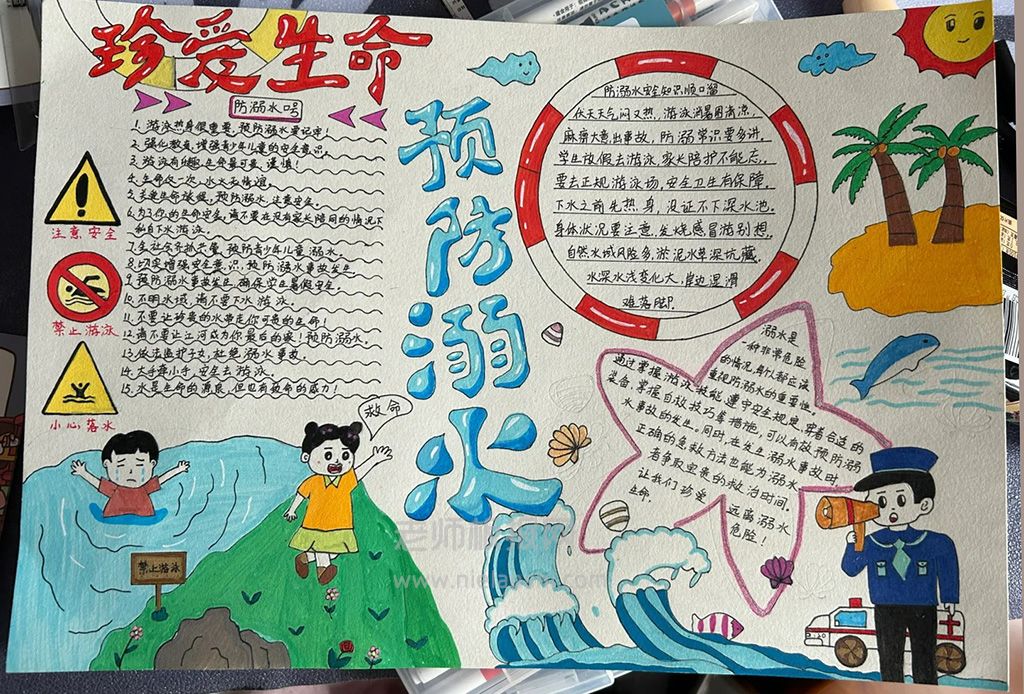 珍爱生命
预防溺水
防溺水口号
1. 游泳热身很重要，预防溺水要记牢！
2. 强化教育，增强青少年儿童的安全意识。
3. 游泳有危险，生命最可贵，谨慎！
4. 生命仅一次，水火无情谊。
5. 关爱生命旅程，预防溺水，注意安全。
6. 为了你的生命安全，请不要在没有家长陪同的情况下
私自下水游泳。
7. 全社会齐抓共管，预防青少年儿童溺水。
8. 切实增强安全意识，预防溺水事故发生
9. 预防溺水事故发生，确保安全暑假安全。
10. 不明水域，请不要下水游泳。
11. 不要让珍贵的水带走你可贵的生命！
12. 请不要让江河成为你最后的家！预防溺水。
13. 依法监护子女，杜绝溺水事故。
14. 大手牵小手，安全去游泳。
15. 水是生命的源泉，但也有致命的威力！
注意安全
禁止游泳
小心落水
防溺水安全知识顺口溜
伏天天气闷又热，游泳消暑图清凉，
麻痹大意出事故，防溺常识要多讲，
学生放假去游泳，家长陪护不能忘，
要去正规游泳场，安全卫生有保障。
下水之前先热身，没证不下深水池。
身体状况要注意，发烧感冒游别想，
自然水域风险多，淤泥水草深坑藏，
水深水浅变化大，岸边湿滑
难落脚。
溺水是
一种非常危险
的情况，每以都应该
重视防溺水的重要性。
通过掌握游泳技能，遵守安全规定，穿着合适的
装备，掌握自救技巧等措施，可以有效预防溺
水事故的发生。同时，在发生溺水事故时
正确的急救方法也能为溺水
者争取宝贵的救治时间。
让我们珍爱
生命，
远离溺水
危险！
救命
禁止游泳
www.